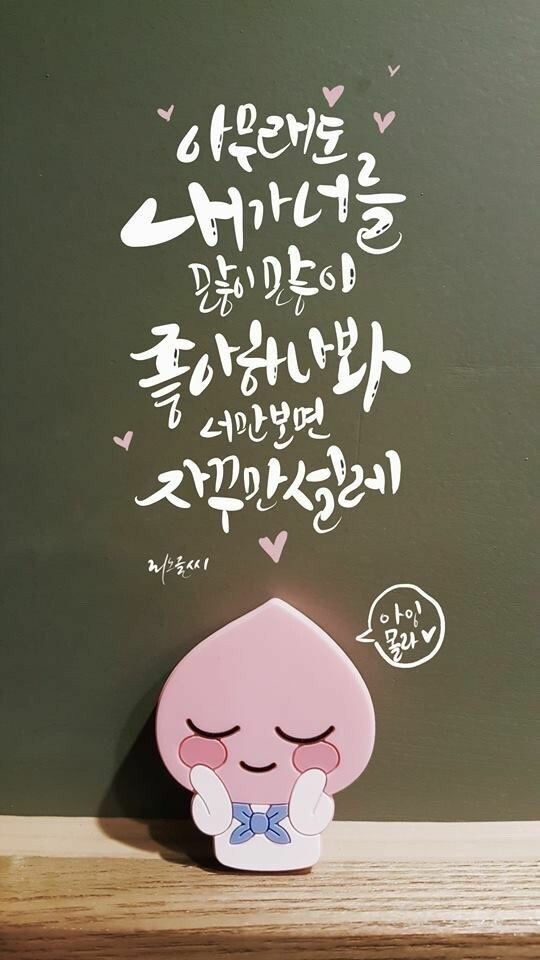 아무래도
내가 너를
많이 많이
좋아하나봐
너만 보면
자꾸만 설레
리노글씨
아잉
몰라